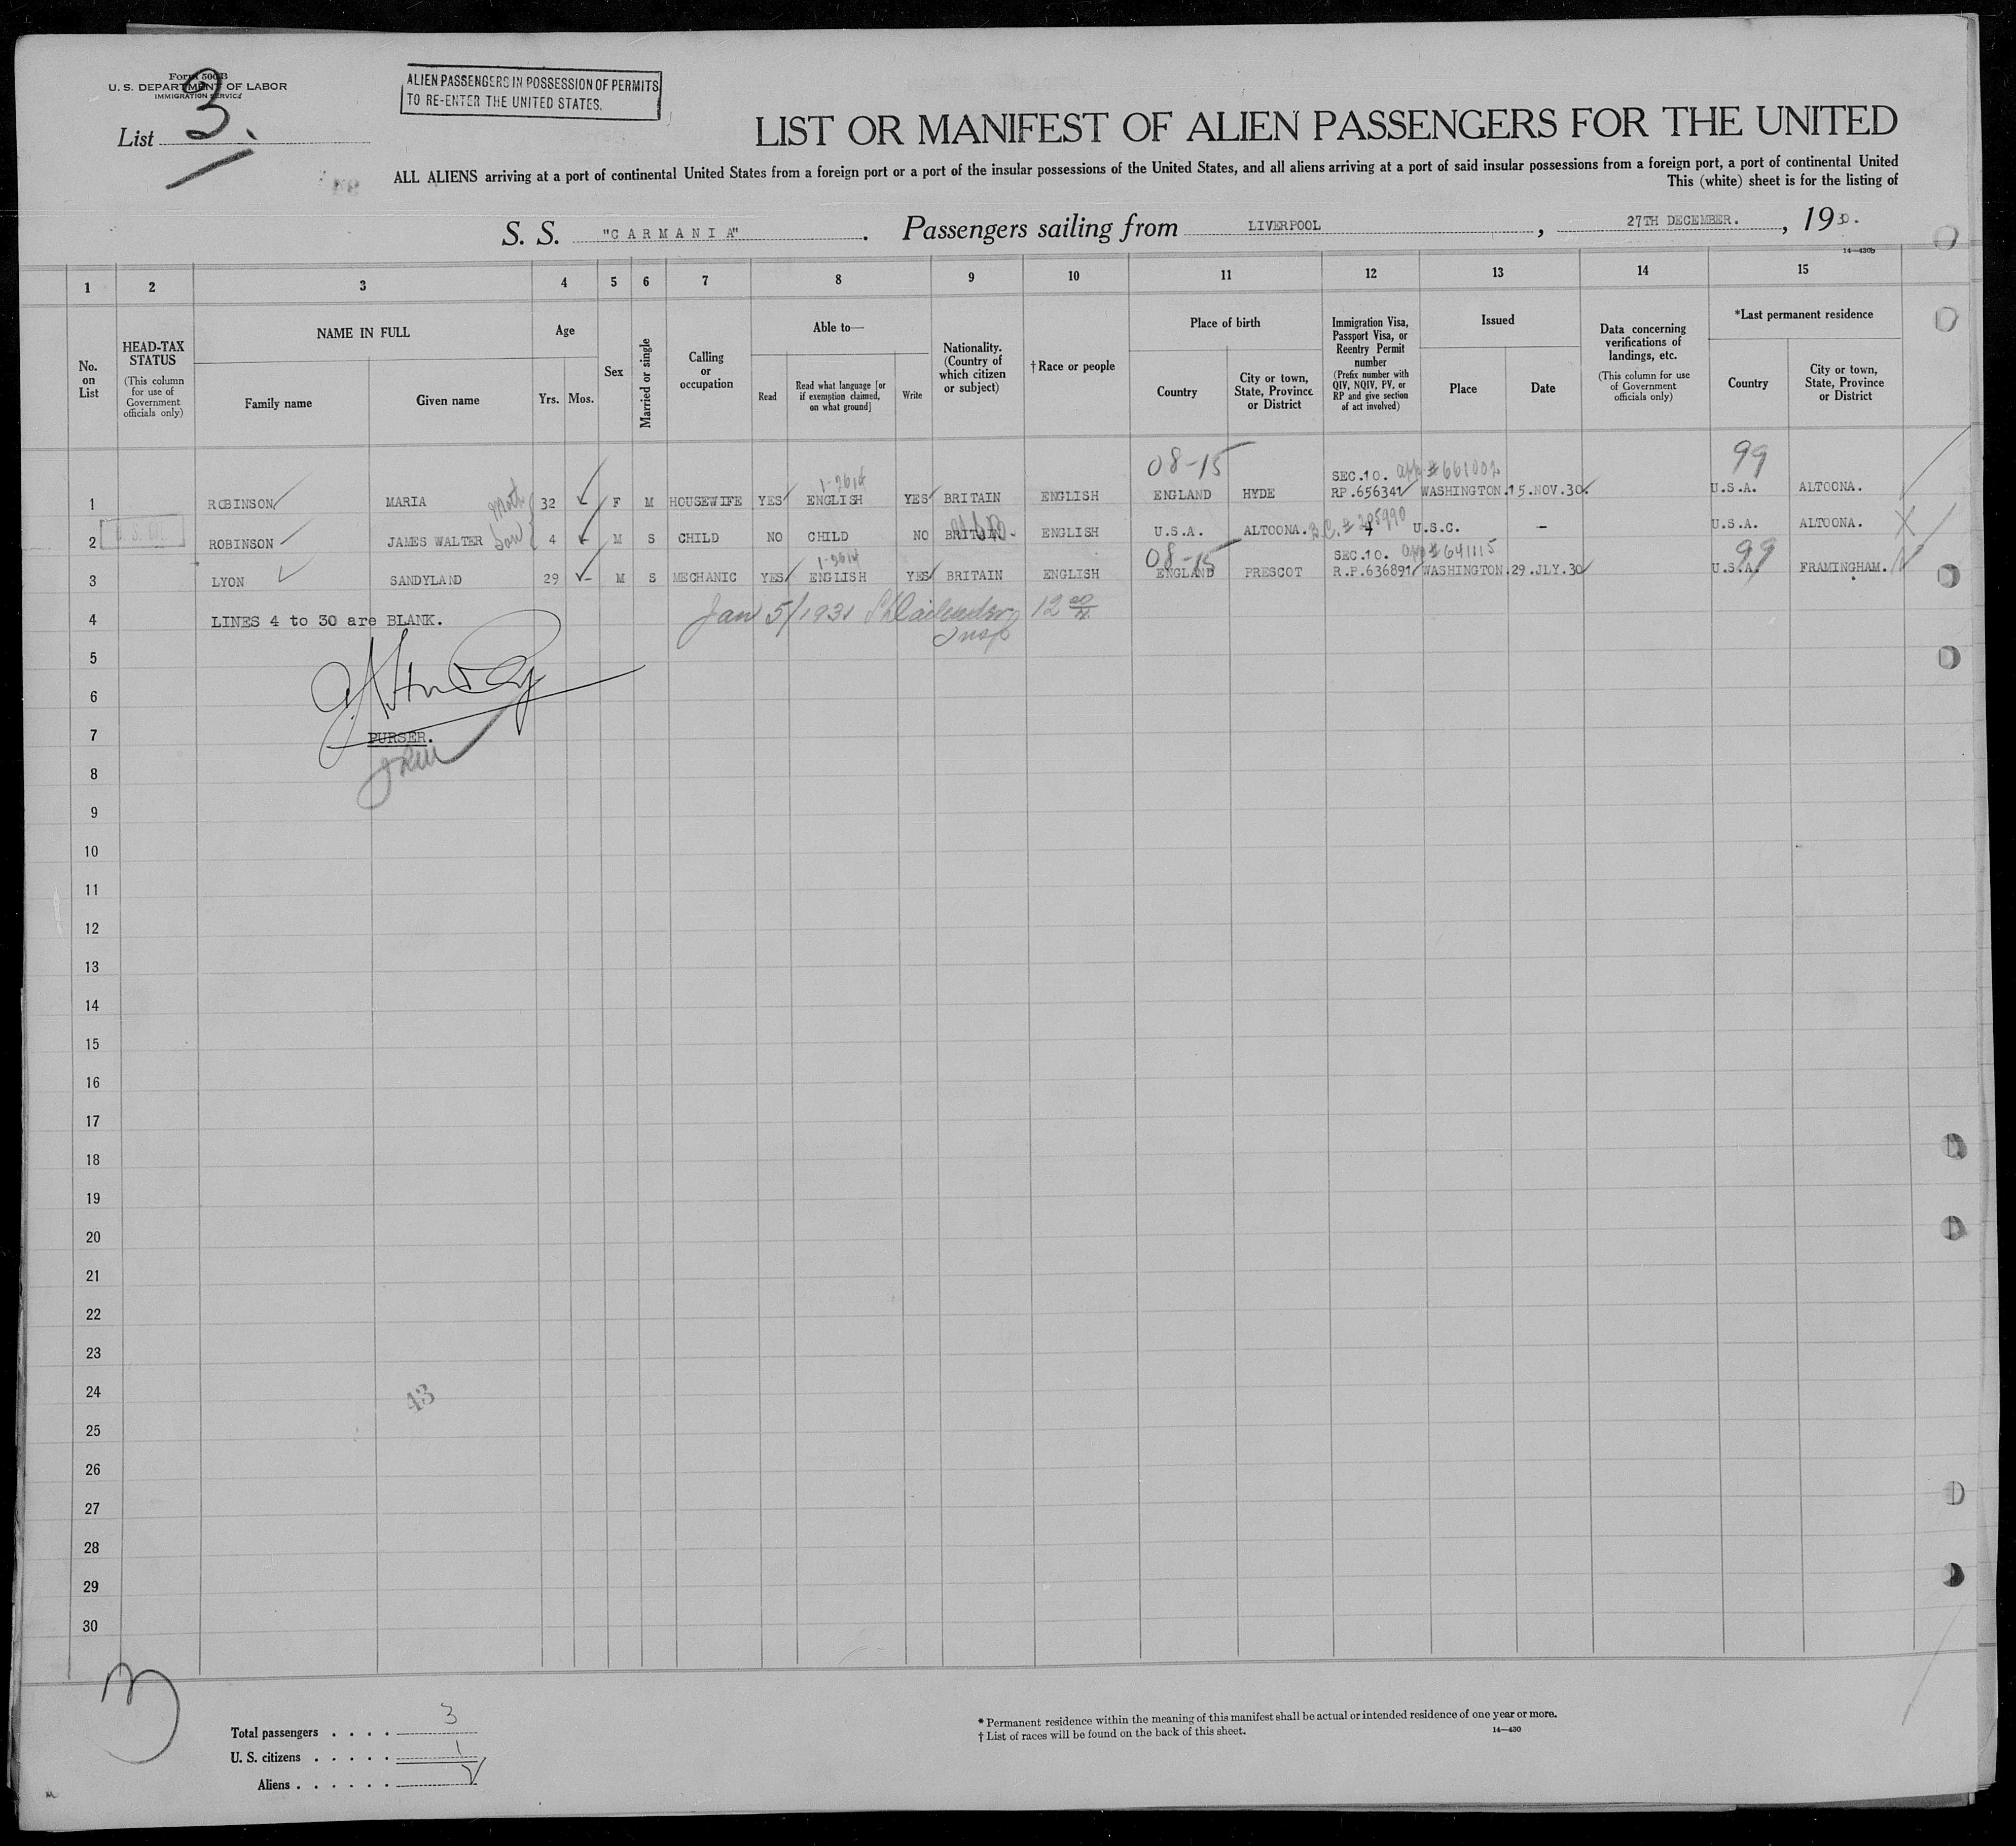 Form 500 B
U. S. DEPARTMENT OF LABOR
IMMIGRATION SERVICE
List 3.
ALIEN PASSENGERS IN POSSESSION OF PERMITS
TO RE-ENTER THE UNITED STATES.
LIST OR MANIFEST OF ALIEN PASSENGERS FOR THE UNITED
ALL ALIENS arriving at a port of continental United States from a foreign port or a port of the insular possessions of the United States, and all aliens arriving at a port of said insular possessions from a foreign port, a port of continental United
This (white) sheet is for the listing of
S. S. "CARMANIA". Passengers sailing from LIVERPOOL, 27TH DECEMBER., 1930.
14—430b
1 2 3 4 5 6 7 8 9 10 11 12 13 14 15
No. on List
HEAD-TAX STATUS
(This column for use of Government officials only)
NAME IN FULL
Family name
Given name
Age
Yrs. Mos.
Sex
Married or single
Calling or occupation
Able to—
Read
Read what language [or if exemption claimed, on what ground]
Write
Nationality. (Country of which citizen or subject)
† Race or people
Place of birth
Country
City or town, State, Province or District
Immigration Visa, Passport Visa, or Reentry Permit number
(Prefix number with QIV, NQIV, PV, or RP and give section of act involved)
Issued
Place
Date
Data concerning verifications of landings, etc.
(This column for use of Government officials only)
*Last permanent residence
Country
City or town, State, Province or District
08-15 99
1-2614 SEC.10.
1 ROBINSON MARIA Moth 32 F M HOUSEWIFE YES ENGLISH YES BRITAIN ENGLISH ENGLAND HYDE RP.656341 WASHINGTON. 15.NOV.30. U.S.A. ALTOONA.
2 ROBINSON JAMES WALTER Son 4 M S CHILD NO CHILD NO BRITAIN ENGLISH U.S.A. ALTOONA. B.C. # 205990 U.S.C. — U.S.A. ALTOONA.
1-2614 08-15 SEC.10. app # 641115 99
3 LYON SANDYLAND 29 M S MECHANIC YES ENGLISH YES BRITAIN ENGLISH ENGLAND PRESCOT R.P.636891 WASHINGTON. 29.JLY.30 U.S.A. FRAMINGHAM.
4 LINES 4 to 30 are BLANK. Jan 5/1931 12
Insp
5
6
7 PURSER.
8
9
10
11
12
13
14
15
16
17
18
19
20
21
22
23
24
43
25
26
27
28
29
30
3
Total passengers . . . . 3
U. S. citizens . . . . . 1
Aliens . . . . . . 2
* Permanent residence within the meaning of this manifest shall be actual or intended residence of one year or more.
† List of races will be found on the back of this sheet.
14—430